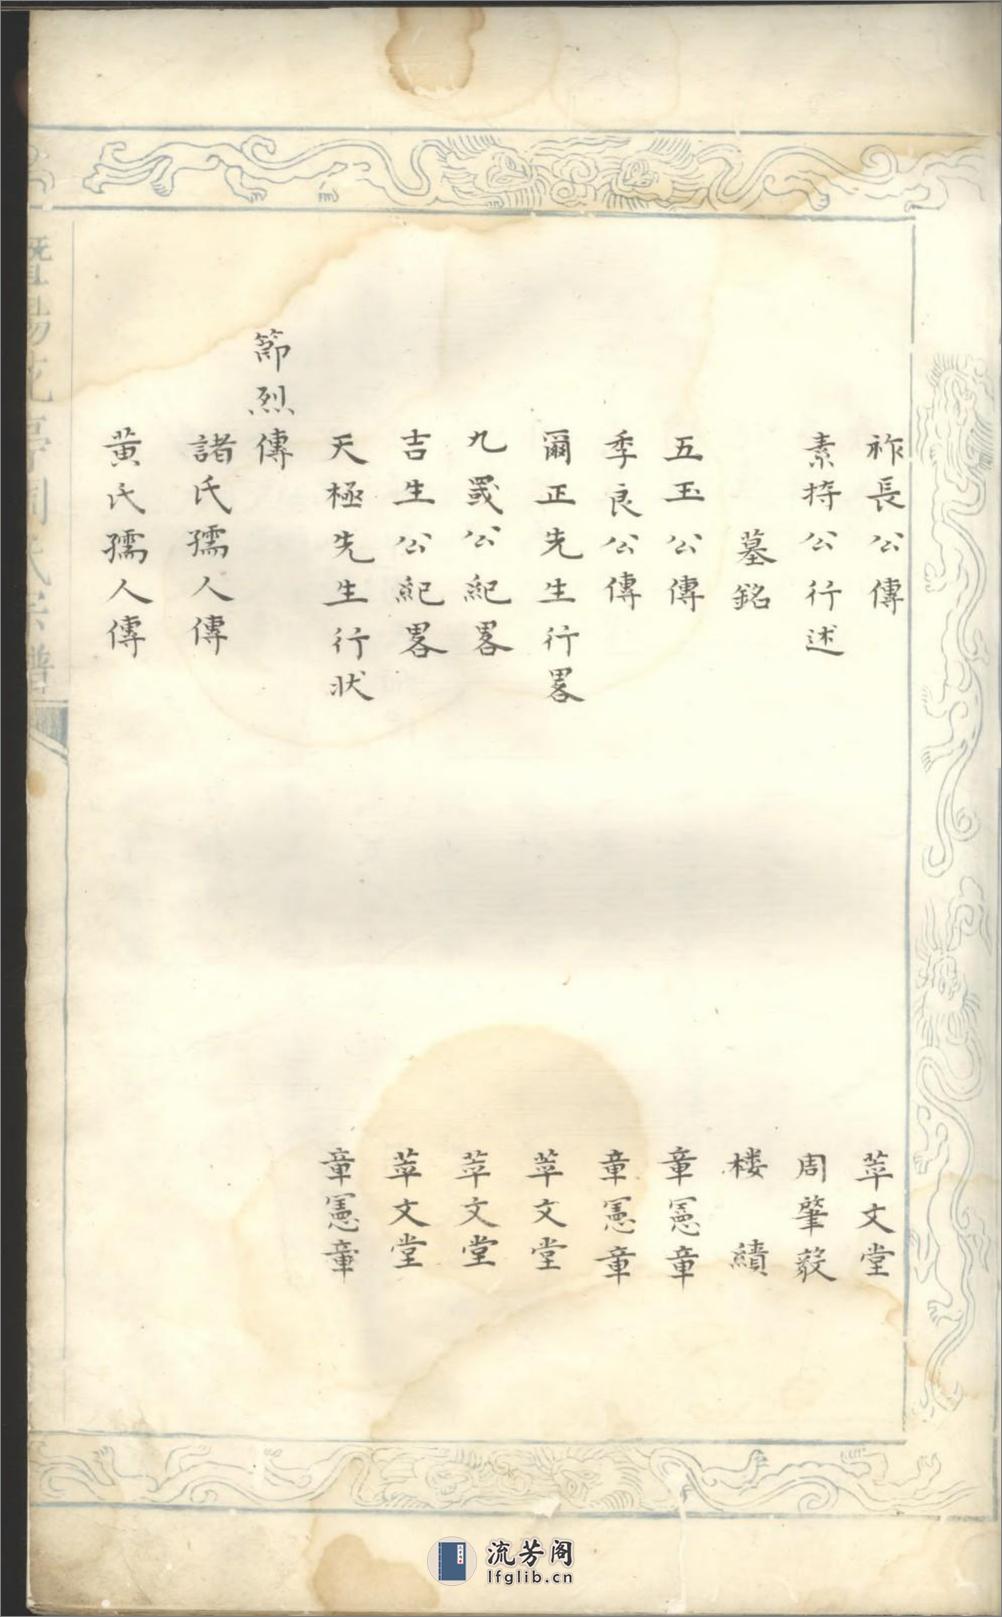 祚長公傳 萃文堂
素持公行述 周肇毅
墓銘 楼績
五玉公傳 章憲章
季良公傳 章憲章
爾正先生行畧 萃文堂
九公紀畧 萃文堂
吉生公紀畧 萃文堂
天極先生行狀 章憲章
節烈傳
諸氏孺人傳
黄氏孺人傳
暨陽花亭周氏宗譜
流芳阁
lfglib.cn